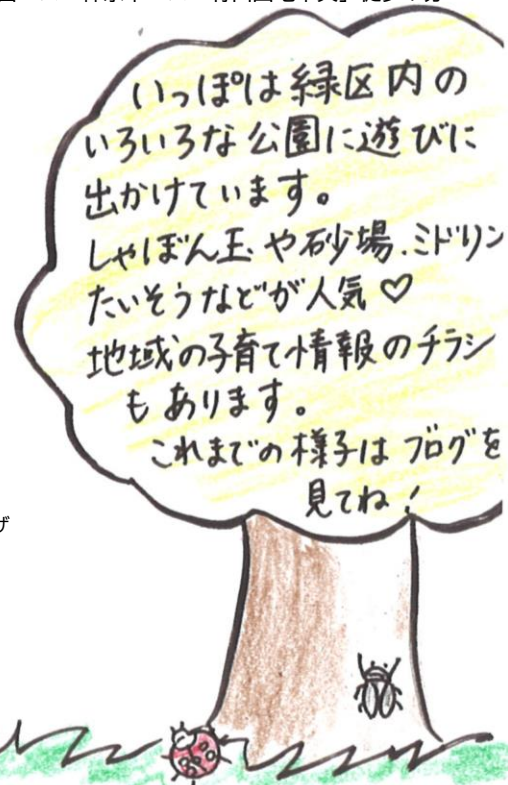 いっぽは緑区内の
いろいろな公園に遊びに
出かけています。
しゃぼん玉や砂場、ミドリン
たいそうなどが人気♡
地域の子育て情報のチラシ
もあります。
これまでの様子はブログを
見てね！